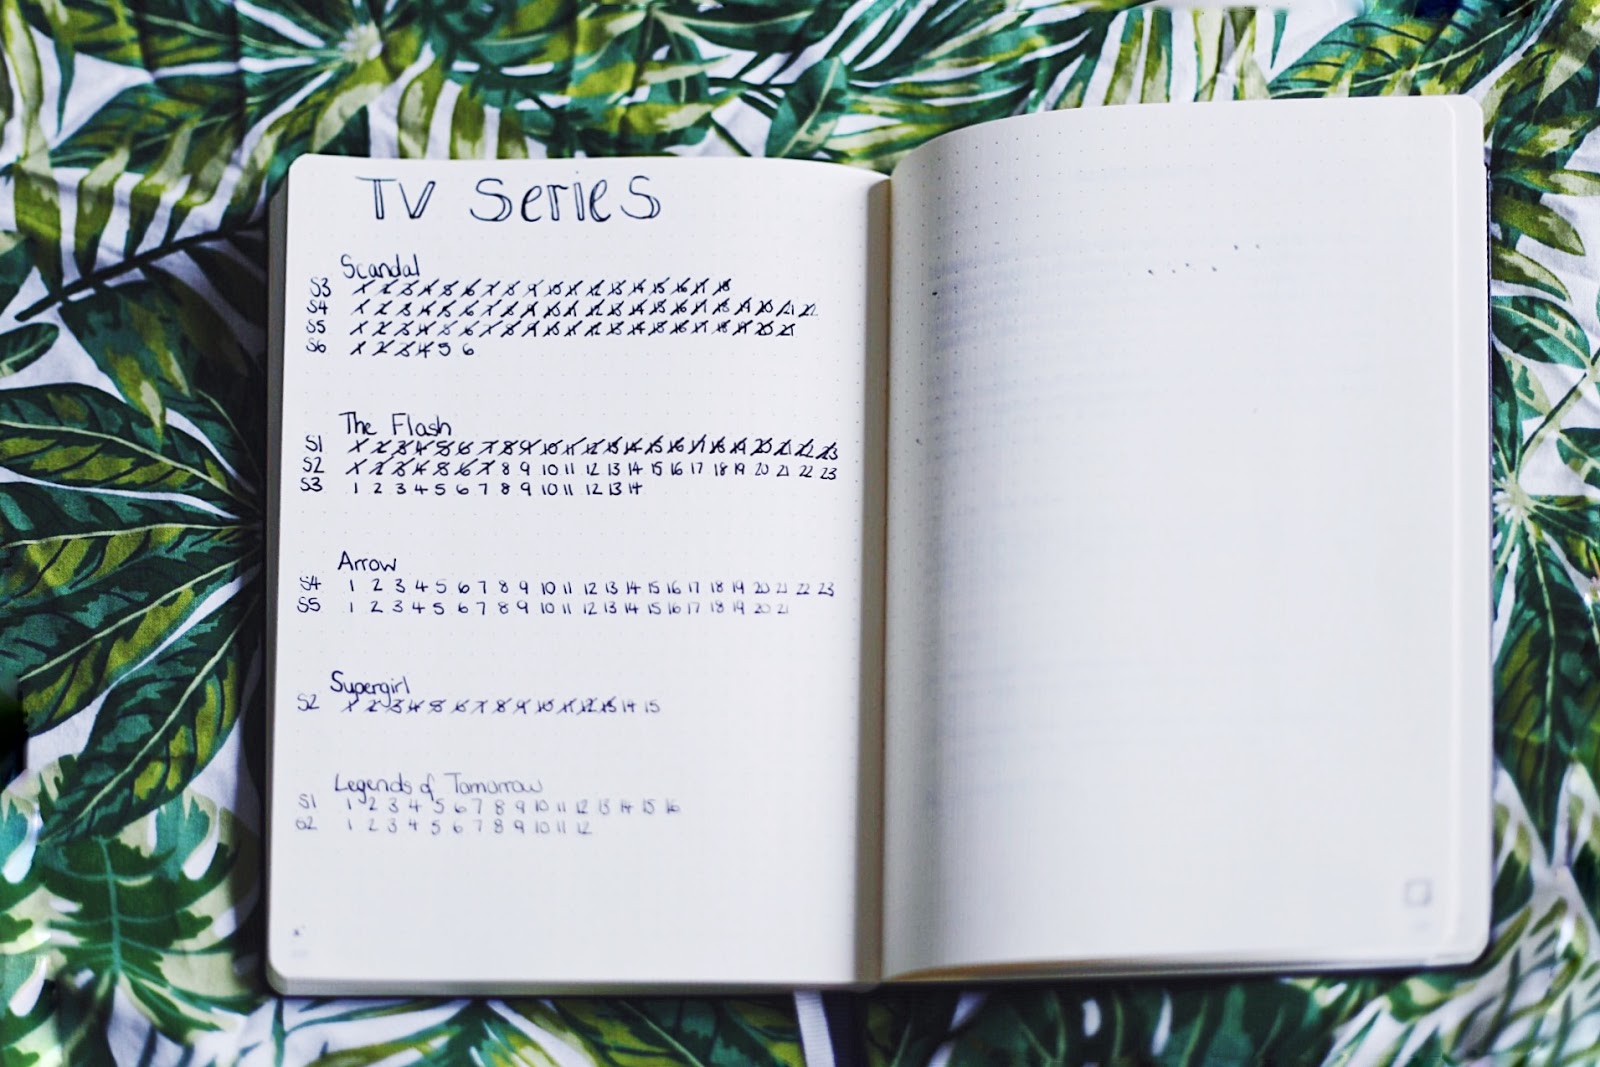 TV SERIES
Scandal
S3 1 2 3 4 5 6 7 8 9 10 11 12 13 14 15 16 17 18
S4 1 2 3 4 5 6 7 8 9 10 11 12 13 14 15 16 17 18 19 20 21 22
S5 1 2 3 4 5 6 7 8 9 10 11 12 13 14 15 16 17 18 19 20 21
S6 1 2 3 4 5 6
The Flash
S1 1 2 3 4 5 6 7 8 9 10 11 12 13 14 15 16 17 18 19 20 21 22 23
S2 1 2 3 4 5 6 7 8 9 10 11 12 13 14 15 16 17 18 19 20 21 22 23
S3 1 2 3 4 5 6 7 8 9 10 11 12 13 14
Arrow
S4 1 2 3 4 5 6 7 8 9 10 11 12 13 14 15 16 17 18 19 20 21 22 23
S5 1 2 3 4 5 6 7 8 9 10 11 12 13 14 15 16 17 18 19 20 21
Supergirl
S2 1 2 3 4 5 6 7 8 9 10 11 12 13 14 15
Legends of Tomorrow
S1 1 2 3 4 5 6 7 8 9 10 11 12 13 14 15 16
S2 1 2 3 4 5 6 7 8 9 10 11 12